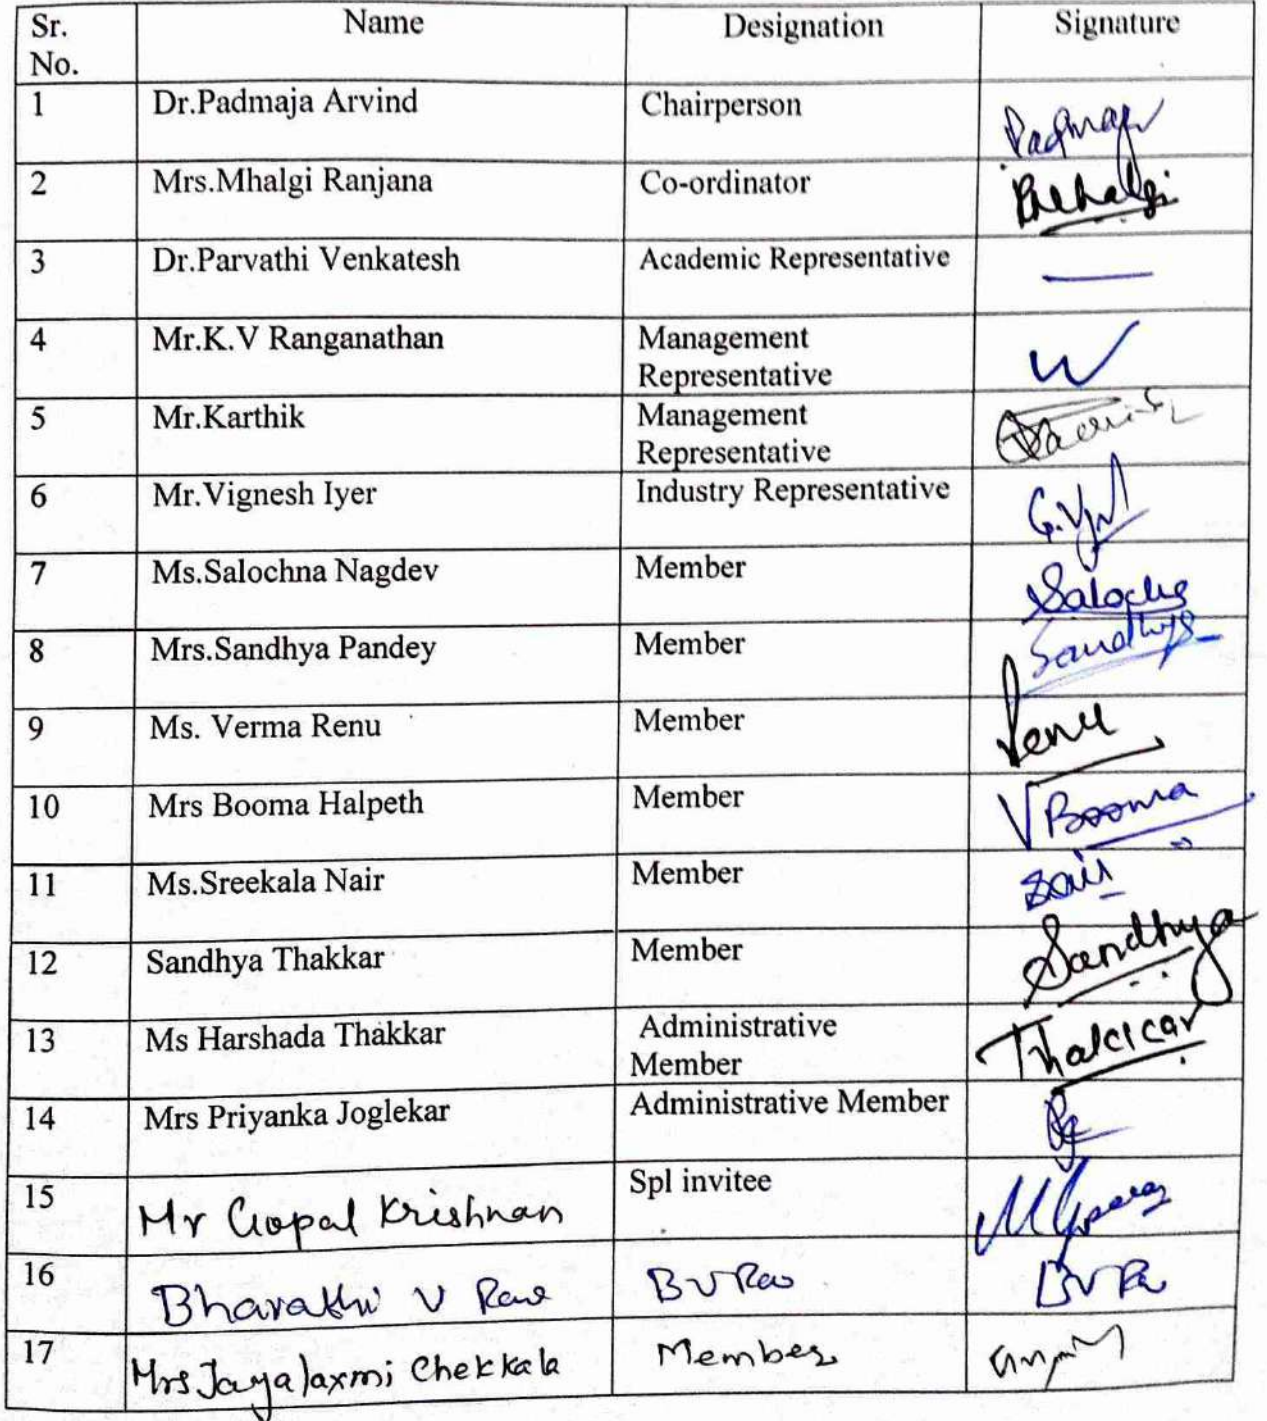 Sr. No. Name Designation Signature
1 Dr.Padmaja Arvind Chairperson Padmaja
2 Mrs.Mhalgi Ranjana Co-ordinator RMhalgi
3 Dr.Parvathi Venkatesh Academic Representative —
4 Mr.K.V Ranganathan Management
Representative
5 Mr.Karthik Management
Representative
6 Mr.Vignesh Iyer Industry Representative
7 Ms.Salochna Nagdev Member
8 Mrs.Sandhya Pandey Member Sandhya
9 Ms. Verma Renu Member Renu
10 Mrs Booma Halpeth Member V Booma
11 Ms.Sreekala Nair Member
12 Sandhya Thakkar Member Sandhya
13 Ms Harshada Thakkar Administrative
Member Thakkar
14 Mrs Priyanka Joglekar Administrative Member
15 Mr Gopal Krishnan Spl invitee
16 Bharathi V Rao B V Rao B V Ra
17 Mrs Jayalaxmi Chekkala Member